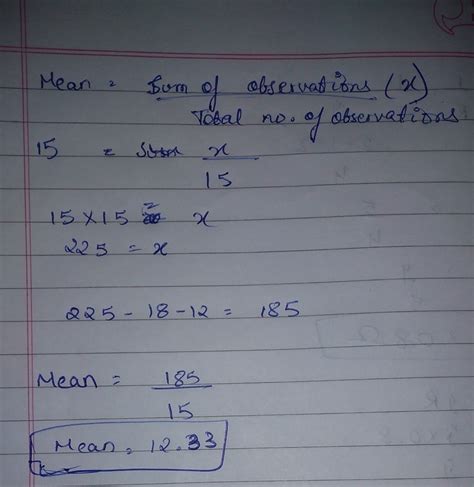 Mean = Sum of observations (x)
Total no. of observations
15 = x
15
15 x 15 = x
225 = x
225 - 18 - 12 = 185
Mean = 185
15
Mean = 12.33